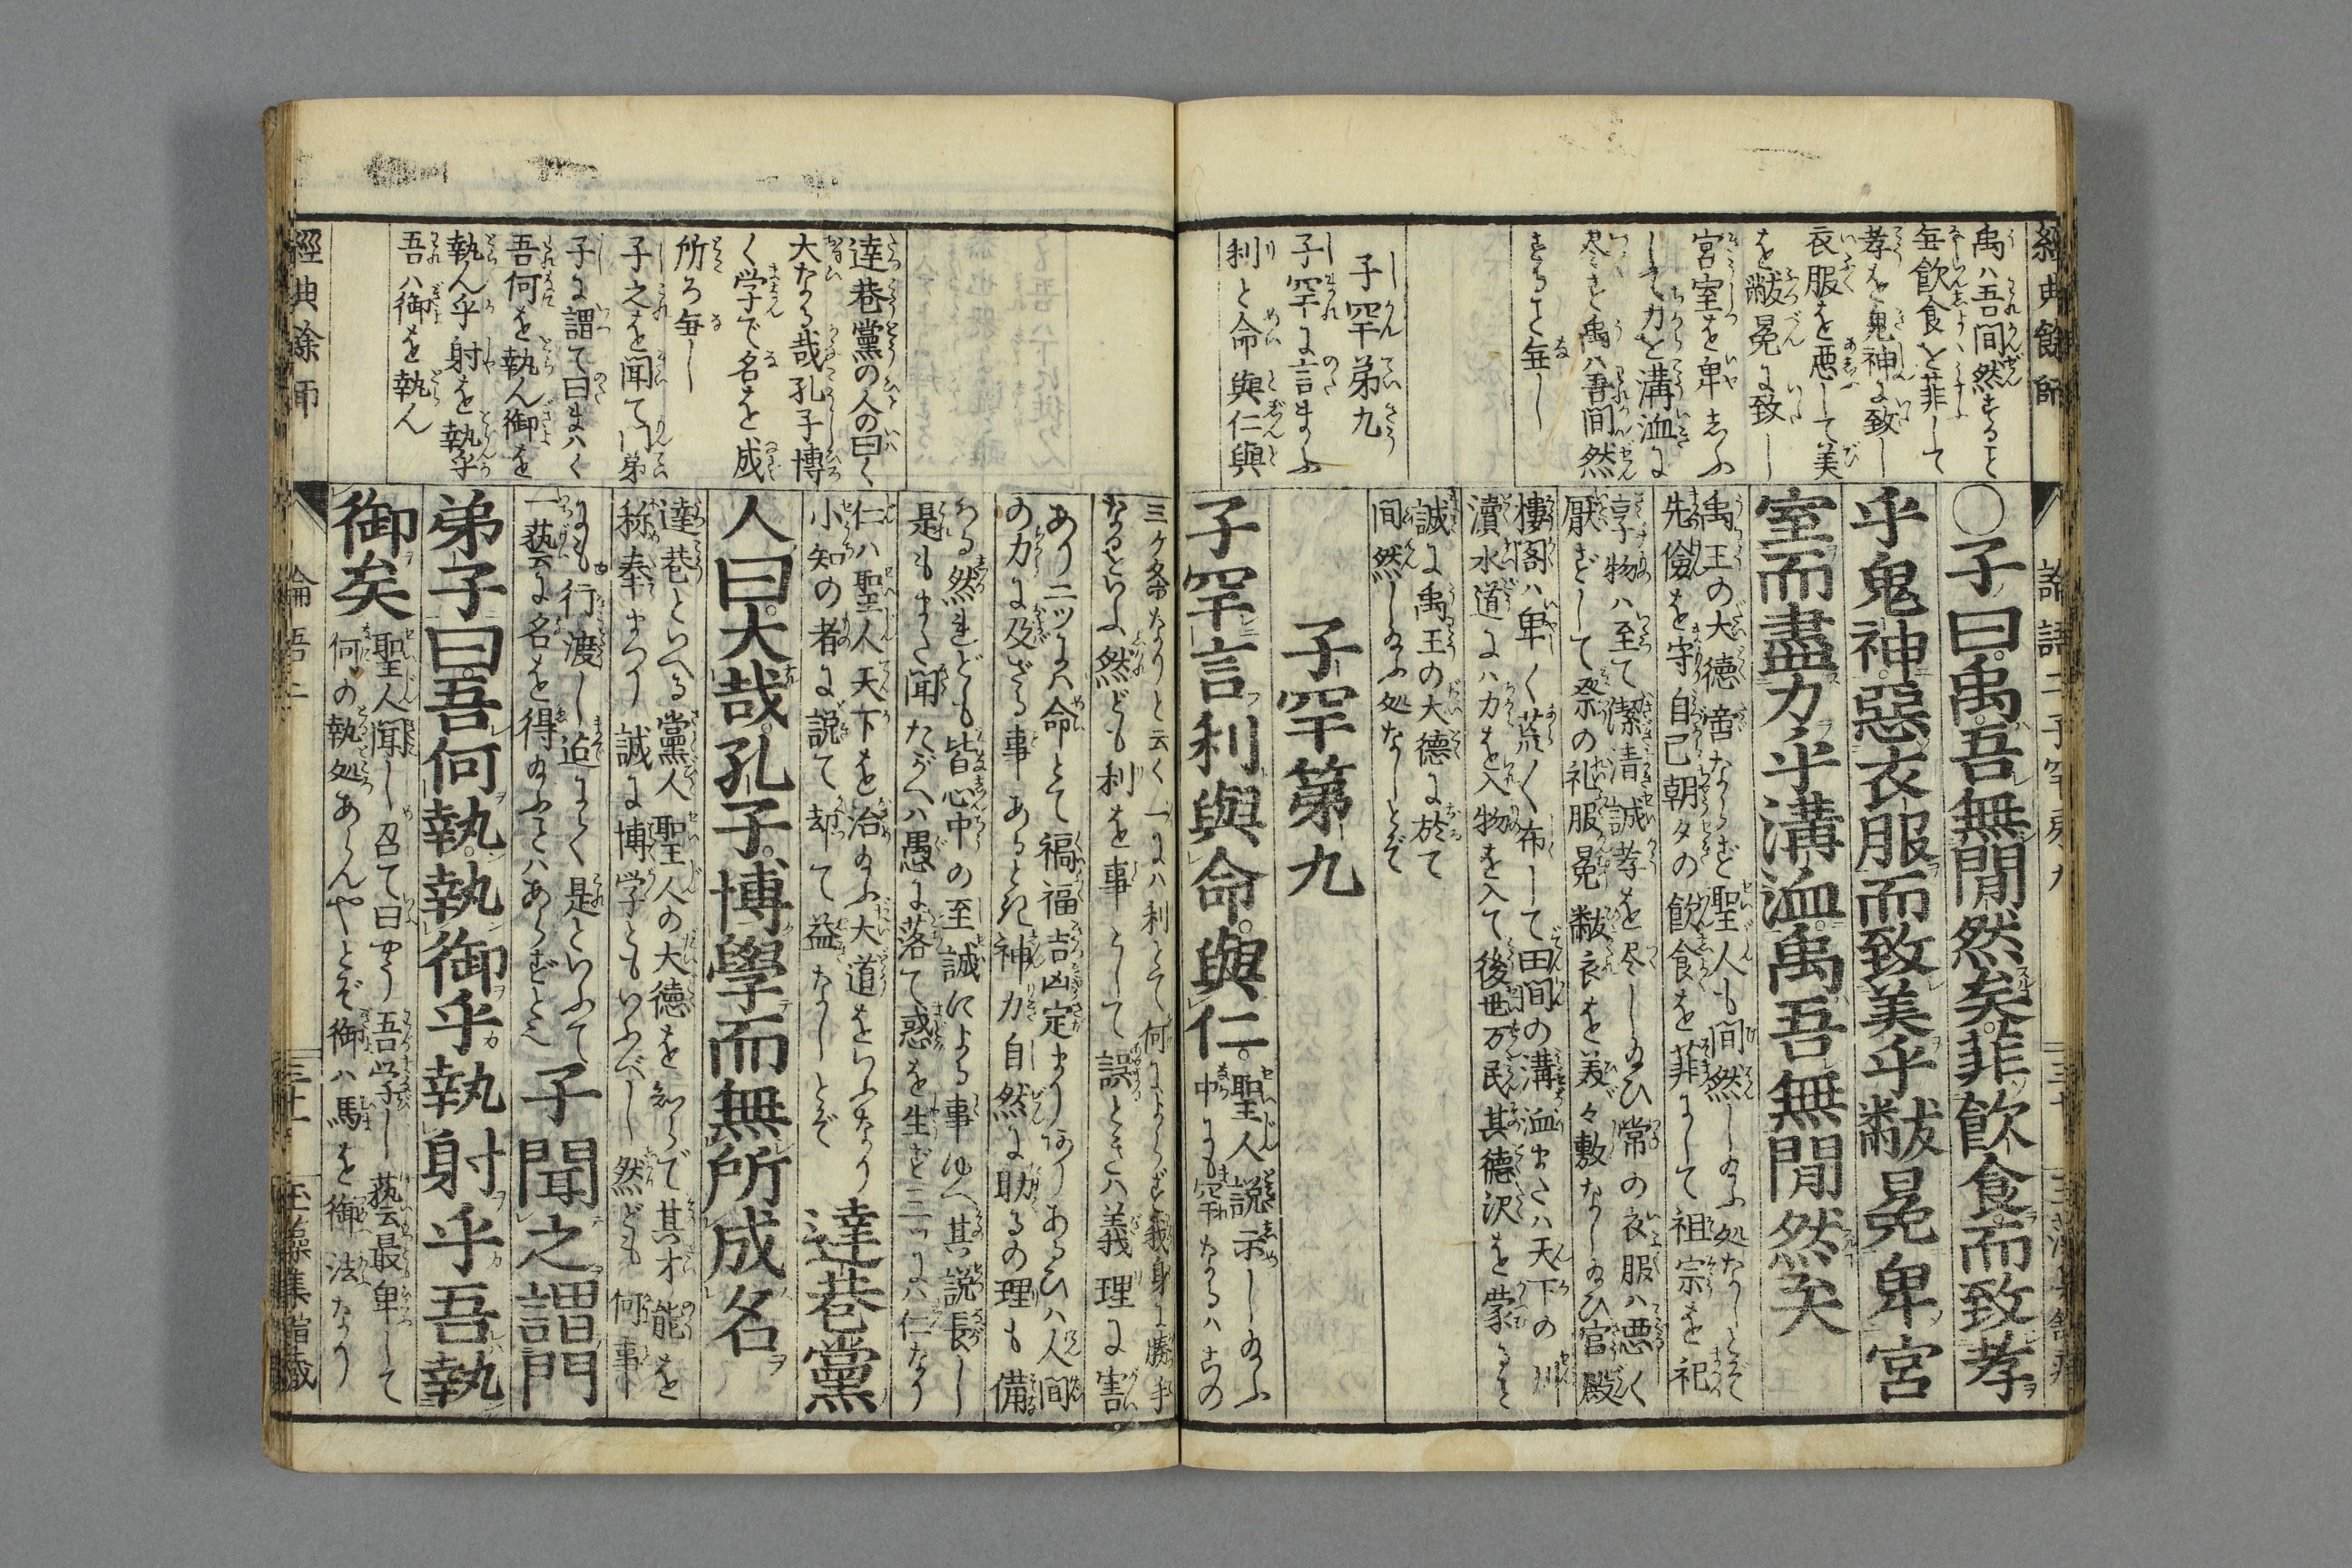 經典餘師
禹ハ吾間然すること
毎飲食を菲して
孝を鬼神に致し
衣服を悪して美
を黻冕に致し
宮室を卑しふ
して力を溝洫に
尽す禹ハ吾間然
すること毎し
子罕第九
子罕に言まふ
利と命與仁與
論語二子罕第九
三十
〇子曰禹吾無閒然矣菲飲食而致孝
乎鬼神惡衣服而致美乎黻冕卑宮
室而盡力乎溝洫禹吾無閒然矣
禹王の大徳啻ならず聖人も間然し給ふ処なしとぞ
先儉を守自己朝夕の飲食を菲にして祖宗を祀
享物ハ至て潔清誠孝を尽し給ひ常の衣服ハ悪く
厭ずして祭の礼服冕黻衣を美々敷なし給ひ官殿
樓閣ハ卑く荒く布して田間の溝洫または天下の川
瀆水道にハ力を入物を入て後世万民其徳沢を蒙る
誠に禹王の大徳に於て
間然し給ふ処なしとぞ
子罕第九
子罕言利與命與仁
聖人説示し給ふ
中にも罕なるハ此の
達巷黨の人の曰く
大なる哉孔子博
く学で名を成
所ろ毎し
子之を聞て門弟
子に謂て曰まハく
吾何を執ん御を
執ん乎射を執ん乎
吾ハ御を執ん
三ケ条なりと云く一にハ利とて何によらず我身の勝手
なるをいふ然ども利を事として誤ときハ義理に害
あり二ツにハ命とて禍福吉凶定まりありあるひハ人間
の力に及ざる事あるとき神力自然に助るの理も備
る然れども皆心中の至誠による事ゆへ其説長し
是もまた聞たがへハ愚に落て惑を生ず三ツにハ仁なり
仁ハ聖人天下を治給ふ大道をいふなり
小知の者に説て却て益なしとぞ
達巷黨
人曰大哉孔子博學而無所成名
達巷といへる黨人聖人の大徳を知らで其才能を
称奉まつり誠に博学ともいふべし然ども何事
にも行渡し迄にく是といふて
一藝に名を得給ふにハあらずと也
子聞之謂門
弟子曰吾何執執御乎執射乎吾執
御矣
聖人聞し召て曰ゆう吾学し藝最卑して
何の執処あらんやとぞ御ハ馬を御法なり
經典餘師
論語二
三十一